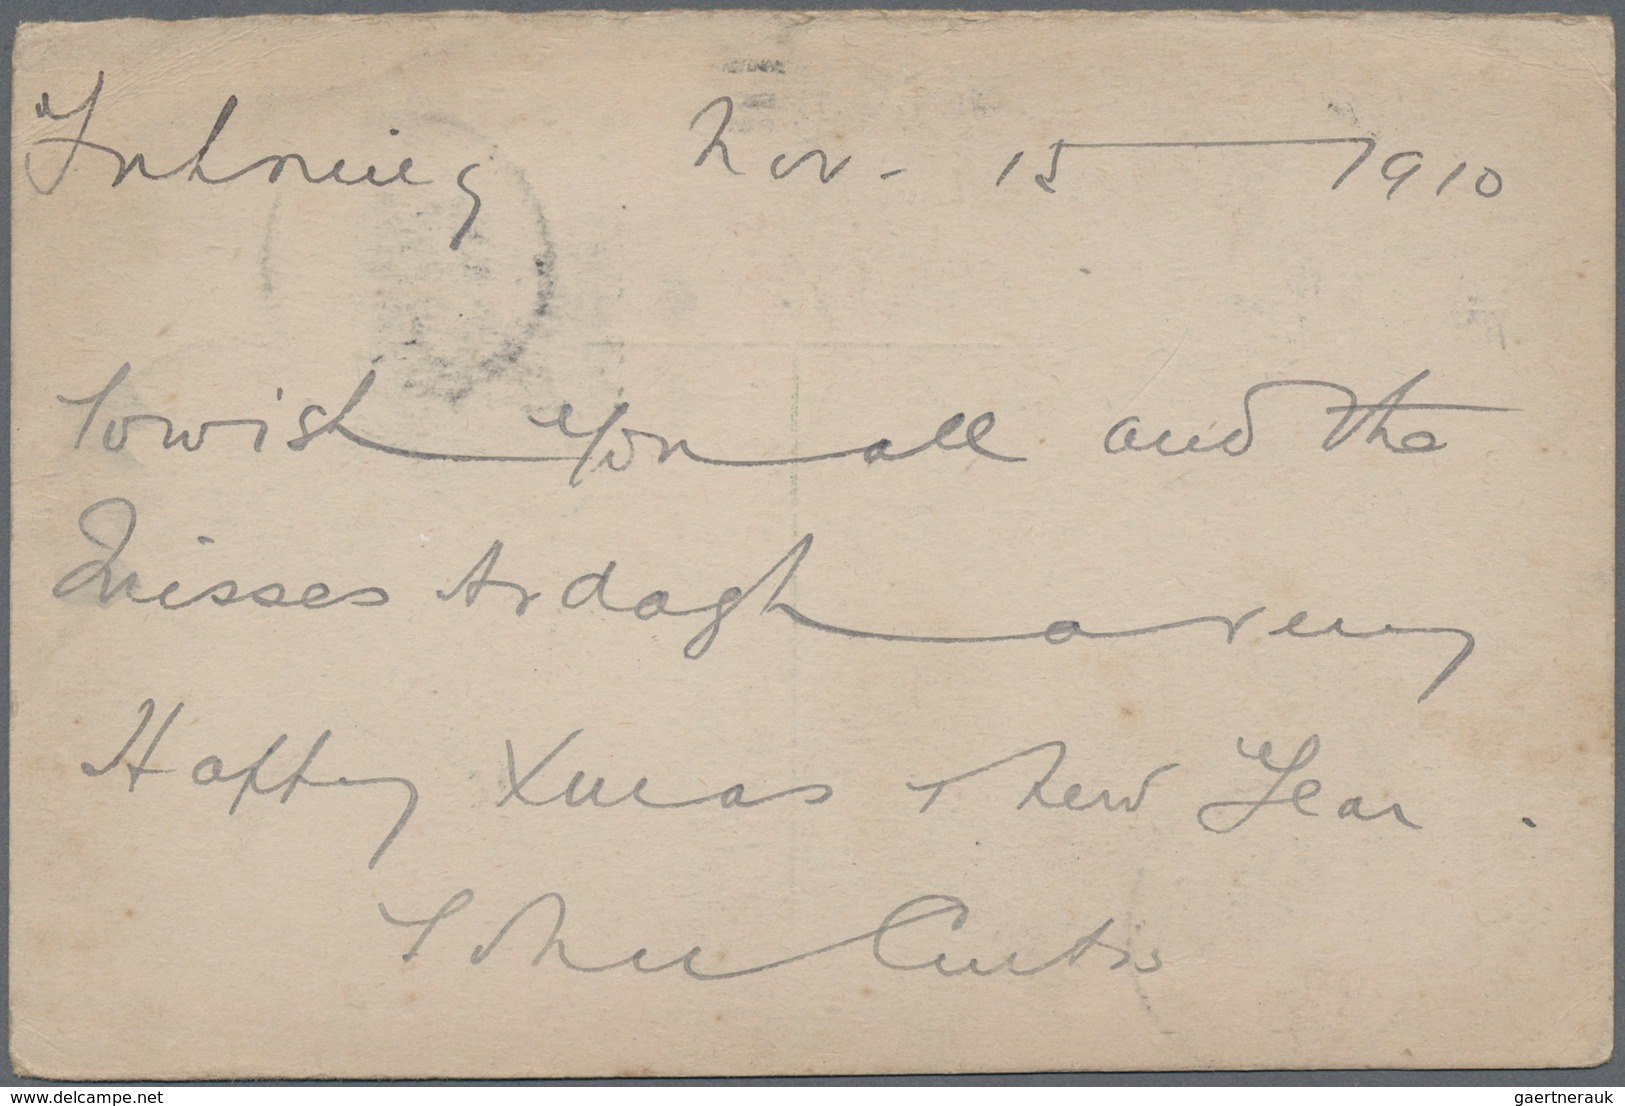 Nov. 15 1910
To wish you all and the
Misses Ardagh a very
Happy Xmas + New Year.
John Curtis
delcampe.net
gaertnerauk